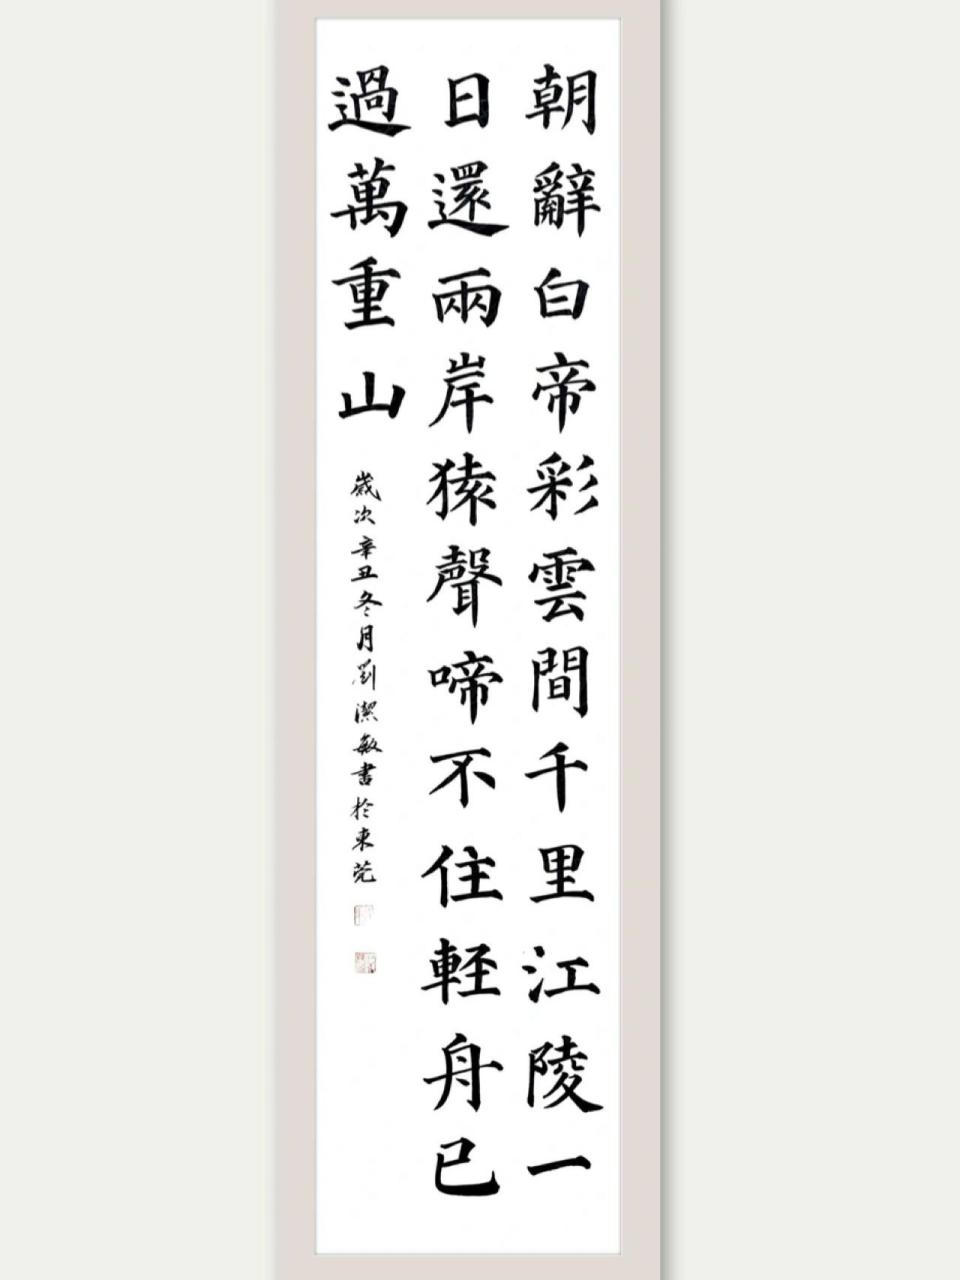 朝辭白帝彩雲間千里江陵一
日還兩岸猿聲啼不住輕舟已
過萬重山
歲次辛丑冬月劉潔敏書於東莞